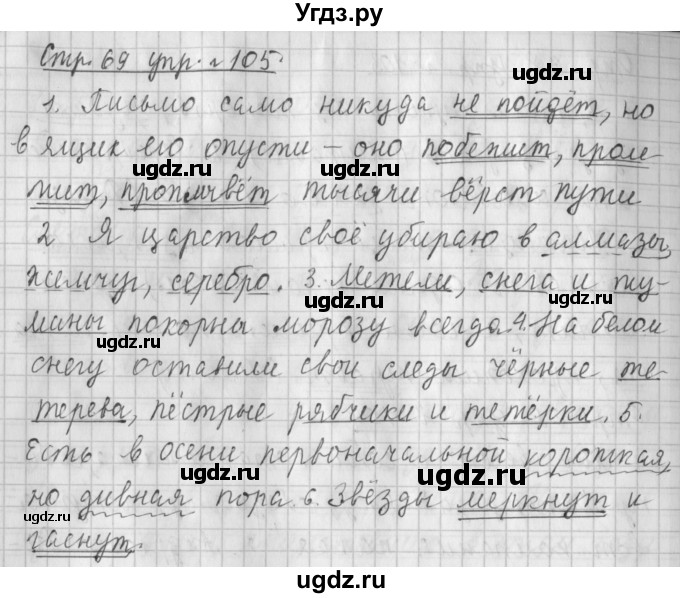 Угдз.ру
Стр. 69 упр. 105.
1. Письмо само никуда не пойдёт, но
в ящик его опусти – оно побежит, проле-
тит, проплывёт тысячи вёрст пути
2 Я царство своё убираю в алмазы,
жемчуг, серебро. 3. Метели, снега и ту-
маны покорны морозу всегда. 4. На белом
снегу оставили свои следы чёрные те-
терева, пёстрые рябчики и тетёрки. 5.
Есть в осени первоначальной короткая,
но дивная пора. 6. Звёзды меркнут и
гаснут.
ugdz.ru
ugdz.ru
ugdz.ru
ugdz.ru
ugdz.ru
ugdz.ru
ugdz.ru
ugdz.ru
ugdz.ru
ugdz.ru
ugdz.ru
ugdz.ru